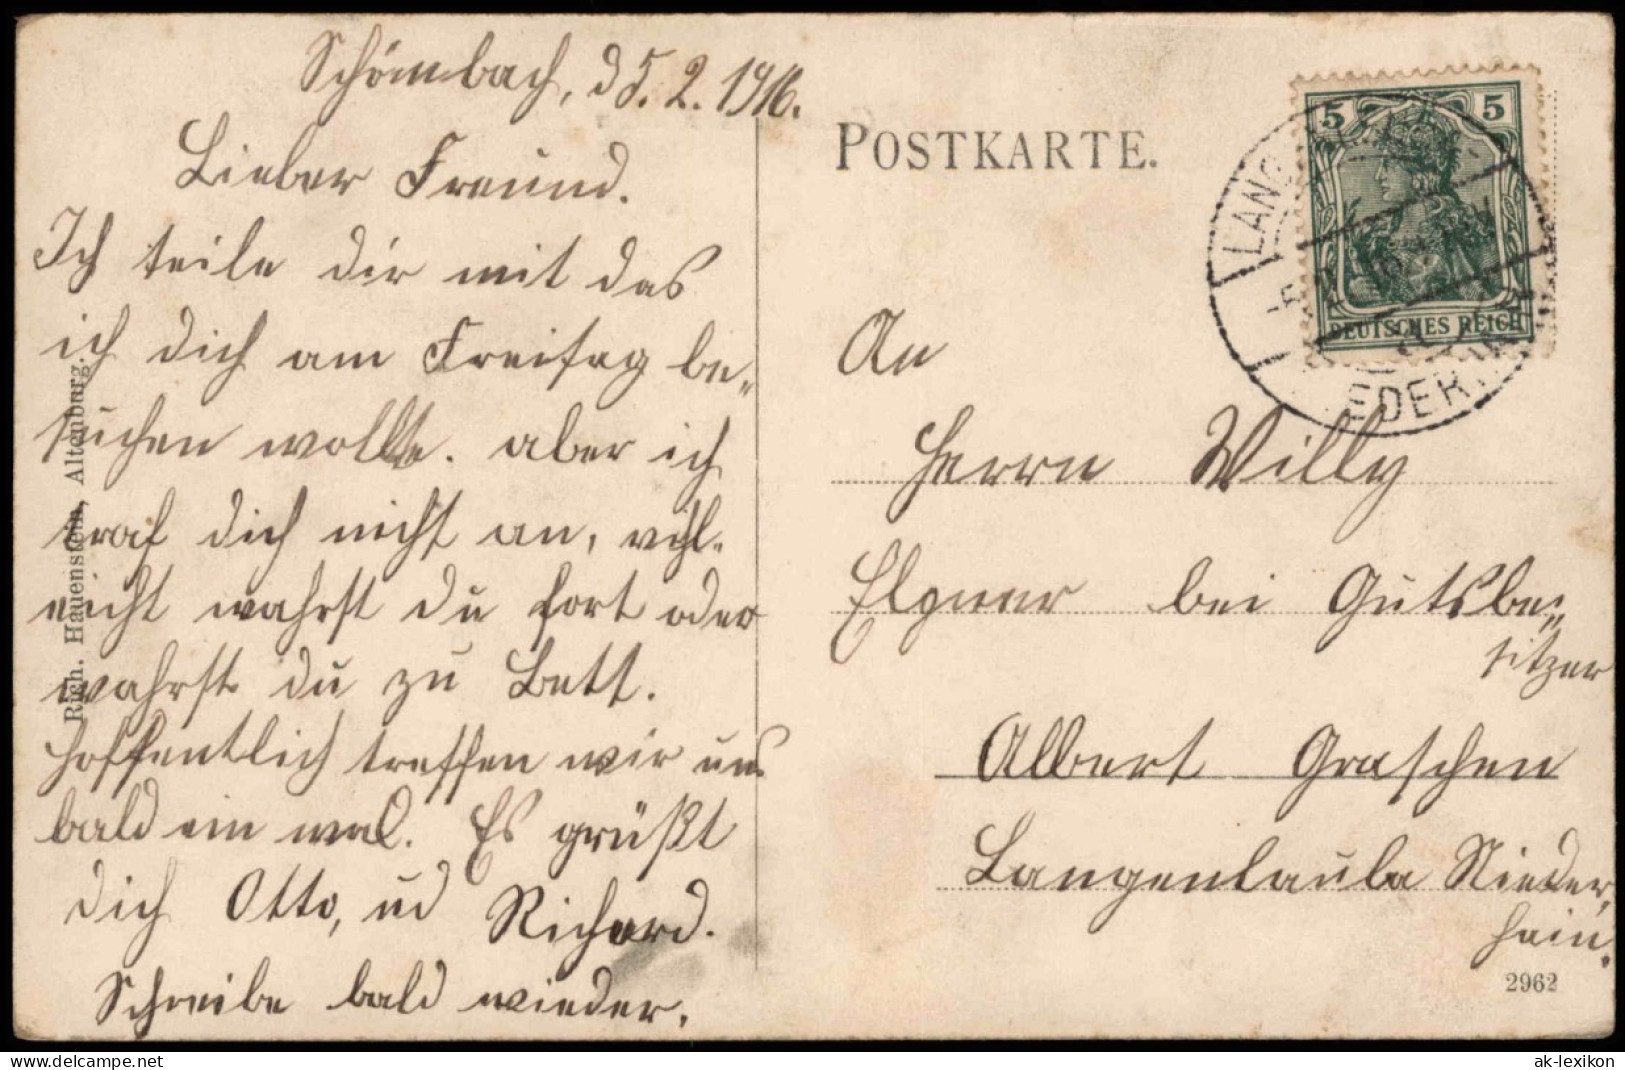 Schömbach, d 5. 2. 1916.
Lieber Freund.
Ich teile dir mit das
ich dich am Freitag be„
suchen wollte. aber ich
traf dich nicht an, vihl-
eicht wahrst du fort oder
wahrst du zu Bett.
hoffentlich treffen wir uns
bald ein mal. Es grüßt
dich Otto, ud Richard.
Schreibe bald wieder.
Rich. Hauenstein, Altenburg.
POSTKARTE.
5 5
DEUTSCHES REICH
An
Herrn Willy
bei Gutsbe„
sitzer
Albert Graschen
Langenlauba Nieder„
hain.
2962
www.delcampe.net
ak-lexikon